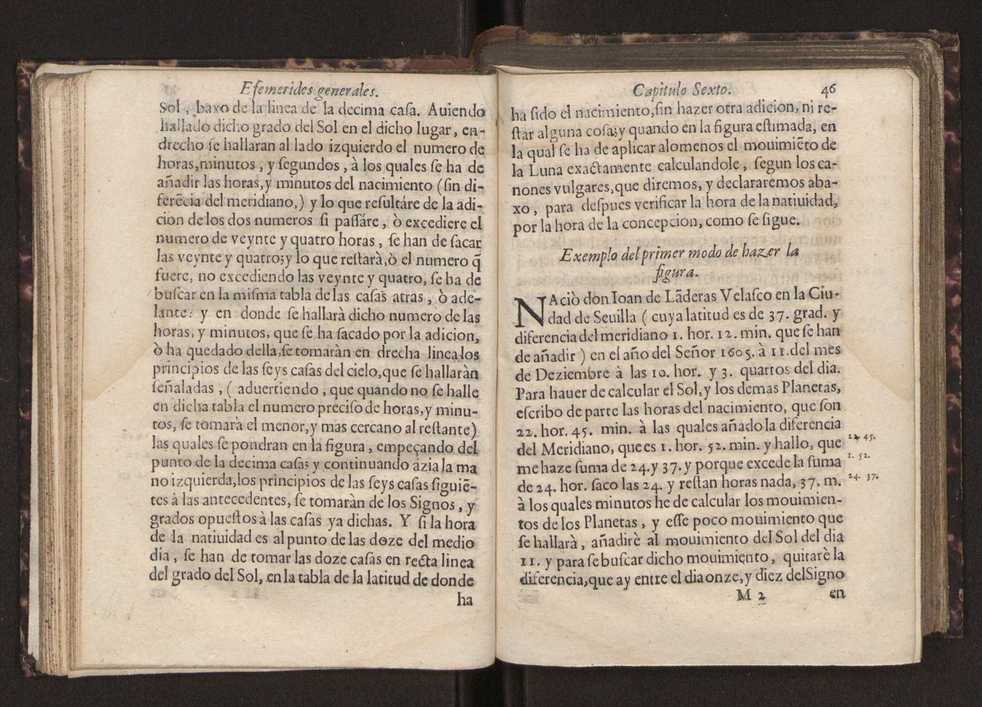 Efemerides generales.
Sol, baxo de la linea de la decima casa. Auiendo
hallado dicho grado del Sol en el dicho lugar, en-
drecho se hallaran al lado izquierdo el numero de
horas,minutos, y segundos, à los quales se ha de
añadir las horas,y minutos del nacimiento (sin di-
ferẽcia del meridiano,) y lo que resultàre de la adi-
cion de los dos numeros si passàre, ò excediere el
numero de veynte y quatro horas, se han de sacar
las veynte y quatro;y lo que restarà,ò el numero q̃
fuere, no excediendo las veynte y quatro, se ha de
buscar en la misma tabla de las casas atras, ò ade-
lante: y en donde se hallarà dicho numero de las
horas, y minutos, que se ha sacado por la adicion,
ò ha quedado della,se tomaràn en drecha linea los
principios de las seys casas del cielo,que se hallaràn
señaladas, ( aduertiendo, que quando no se halle
en dicha tabla el numero preciso de horas,y minu-
tos, se tomarà el menor,y mas cercano al restante)
las quales se pondran en la figura, empeçando del
punto de la decima casa; y continuando azia la ma
no izquierda,los principios de las seys casas siguiẽ-
tes à las antecedentes, se tomaràn de los Signos, y
grados opuestos à las casas ya dichas. Y si la hora
de la natiuidad es al punto de las doze del medio
dia, se han de tomar las doze casas en recta linea
del grado del Sol, en la tabla de la latitud de donde
ha
Capitulo Sexto. 46
ha sido el nacimiento,sin hazer otra adicion, ni re-
star alguna cosa;y quando en la figura estimada, en
la qual se ha de aplicar alomenos el mouimiẽto de
la Luna exactamente calculandole, segun los ca-
nones vulgares,que diremos, y declararemos aba-
xo, para despues verificar la hora de la natiuidad,
por la hora de la concepcion, como se sigue.
Exemplo del primer modo de hazer la
figura.
NAciò don Ioan de Lãderas Velasco en la Ciu-
dad de Seuilla ( cuya latitud es de 37. grad. y
diferencia del meridiano 1. hor. 12. min. que se han
de añadir ) en el año del Señor 1605. à 11. del mes
de Deziembre à las 10. hor. y 3. quartos del dia.
Para hauer de calcular el Sol,y los demas Planetas,
escribo de parte las horas del nacimiento, que son
22. hor. 45. min. à las quales añado la diferencia
del Meridiano, que es 1. hor. 52. min. y hallo, que
me haze suma de 24.y 37.y porque excede la suma
de 24. hor. saco las 24. y restan horas nada, 37. m.
à los quales minutos he de calcular los mouimien-
tos de los Planetas, y esse poco mouimiento que
se hallarà, añadirè al mouimiento del Sol del dia
11. y para se buscar dicho mouimiento, quitarè la
diferencia,que ay entre el dia onze,y diez del Signo
45.
1. 52.
24. 37.
M 2 en